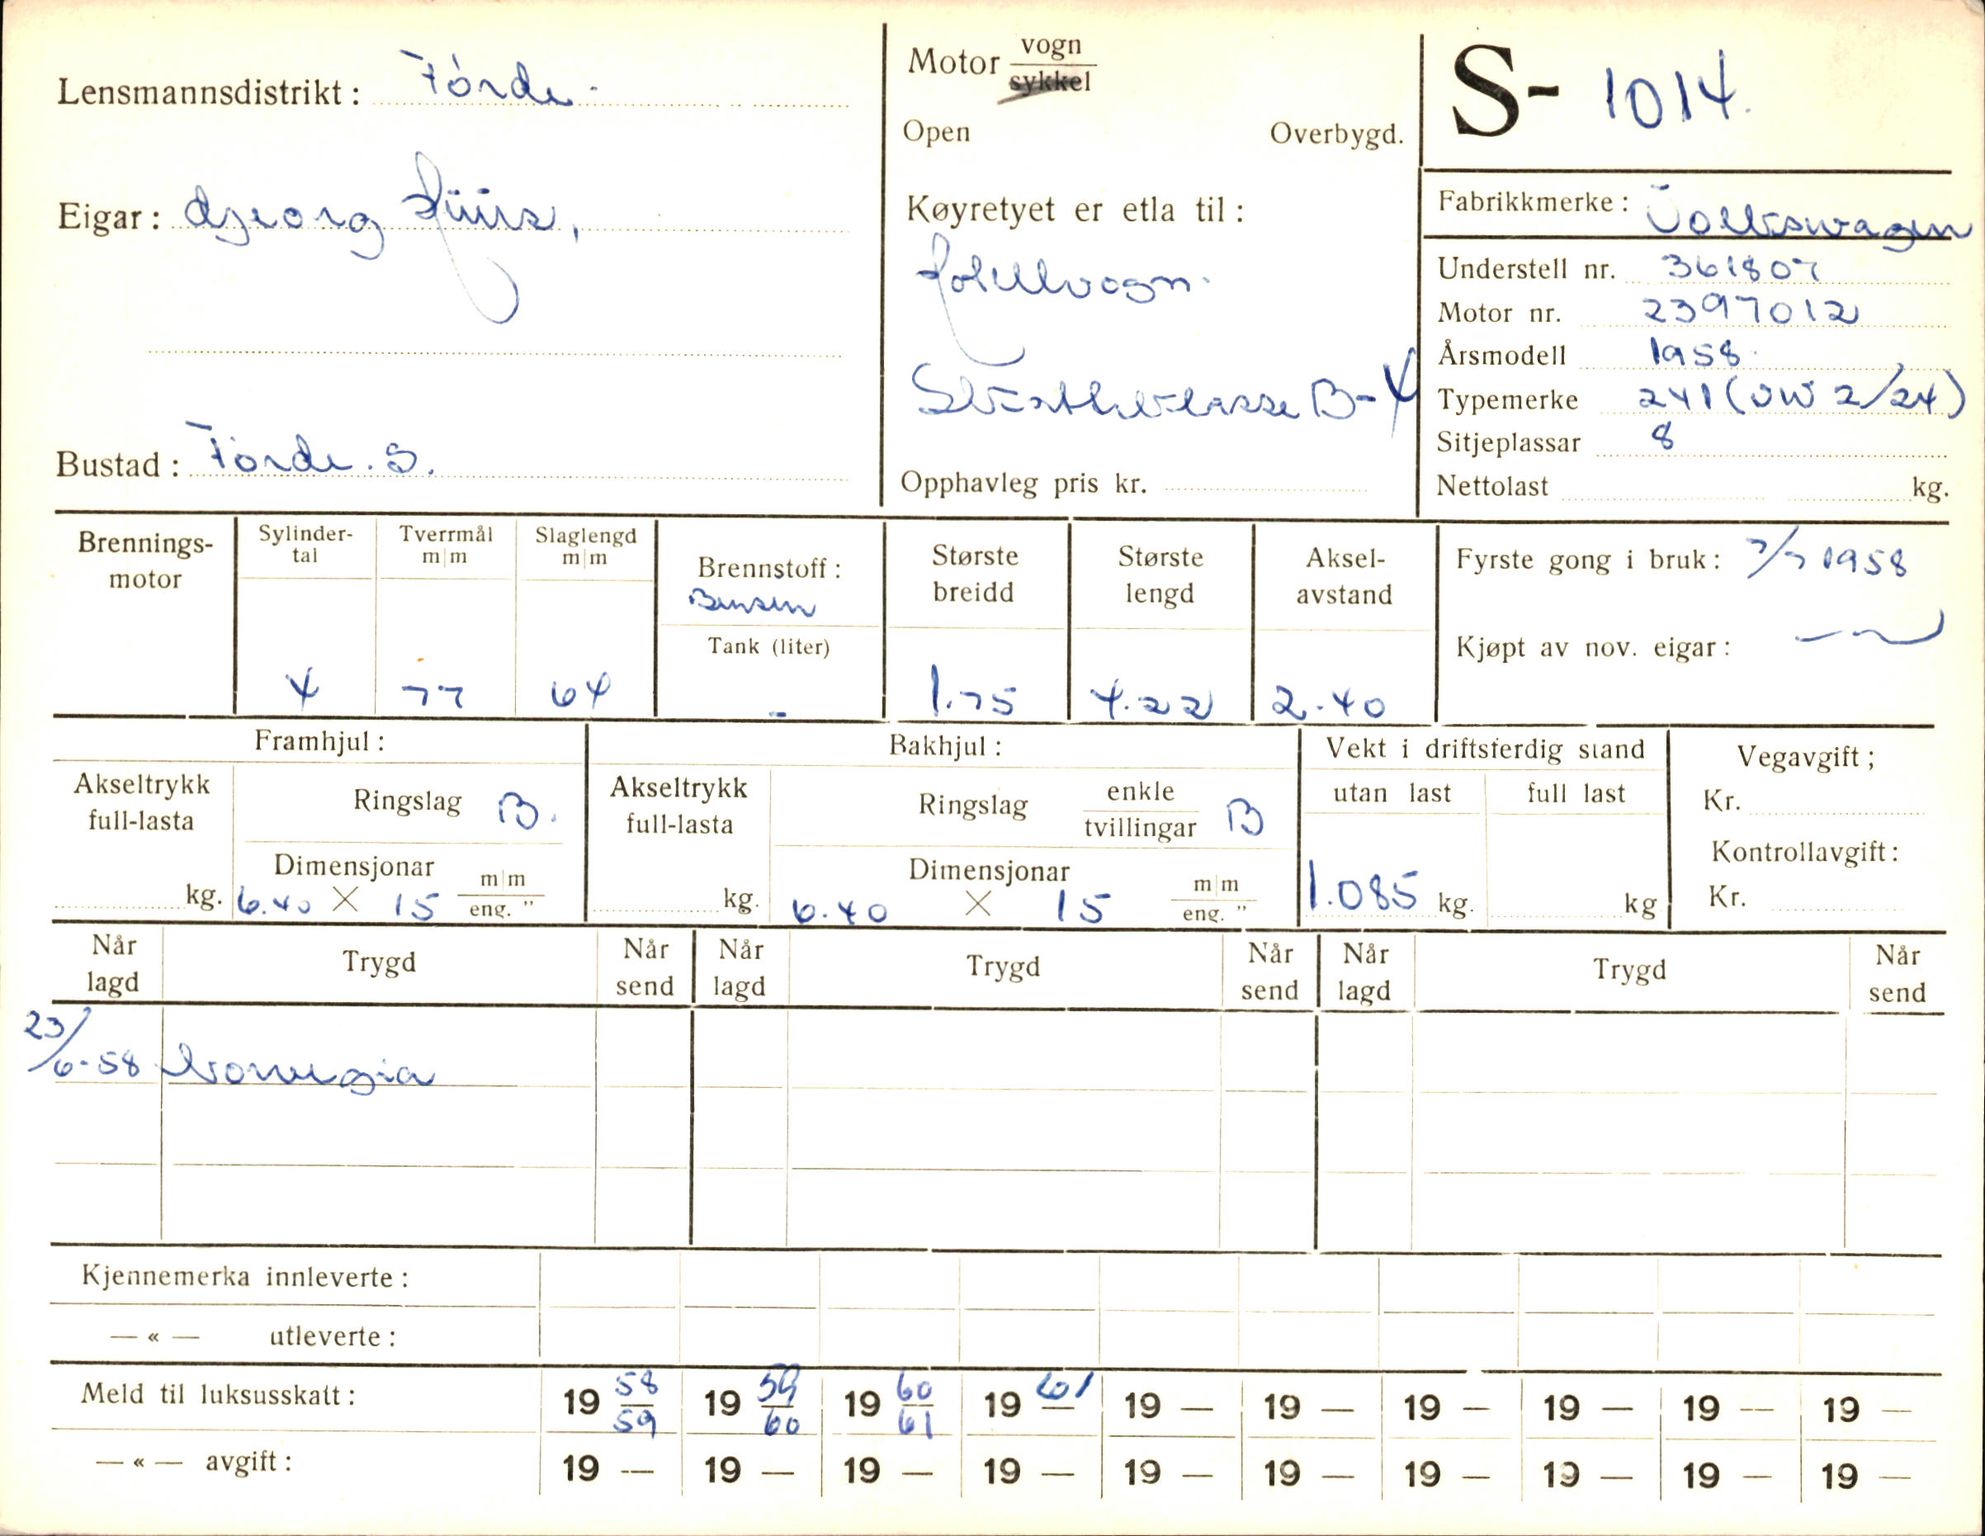 Lensmannsdistrikt: Förde.
Eigar: Georg
Bustad: Förde. S.
Motor vogn
sykkel
Open Overbygd.
Køyretyet er etla til:
B-4
Opphavleg pris kr.
S- 1014.
Fabrikkmerke: Volkswagen
Understell nr. 361807
Motor nr. 2397012
Årsmodell 1958
Typemerke 241 (VW 2/24)
Sitjeplassar 8
Nettolast kg.
Brennings-
motor
Sylinder-
tal
4
Tverrmål
m|m
77
Slaglengd
m|m
64
Brennstoff:
Bensin
Tank (liter)
-
Største
breidd
1.75
Største
lengd
4.22
Aksel-
avstand
2.40
Fyrste gong i bruk: 7/7 1958
Kjøpt av nov. eigar:
Framhjul:
Akseltrykk
full-lasta
kg.
Ringslag B.
Dimensjonar m|m
6.40 X 15 eng. "
Bakhjul:
Akseltrykk
full-lasta
kg.
Ringslag enkle
tvillingar B
Dimensjonar m|m
6.40 X 15 eng. "
Vekt i driftsferdig stand
utan last full last
1.085 kg. kg
Vegavgift;
Kr.
Kontrollavgift:
Kr.
Når
lagd Trygd Når
send Når
lagd Trygd Når
send Når
lagd Trygd Når
send
23/6-58 Norvegia
Kjennemerka innleverte:
— « — utleverte:
Meld til luksusskatt: 19 58/59 19 59/60 19 60/61 19 61 19 — 19 — 19 — 19 — 19 — 19 —
— « — avgift: 19 — 19 — 19 — 19 — 19 — 19 — 19 — 19 — 19 — 19 —